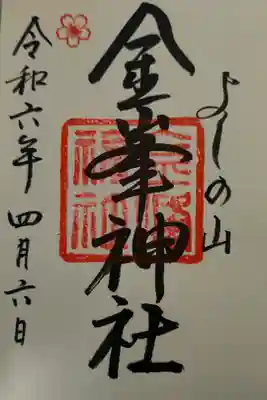 よしの山
金峯神社
令和六年 四月六日